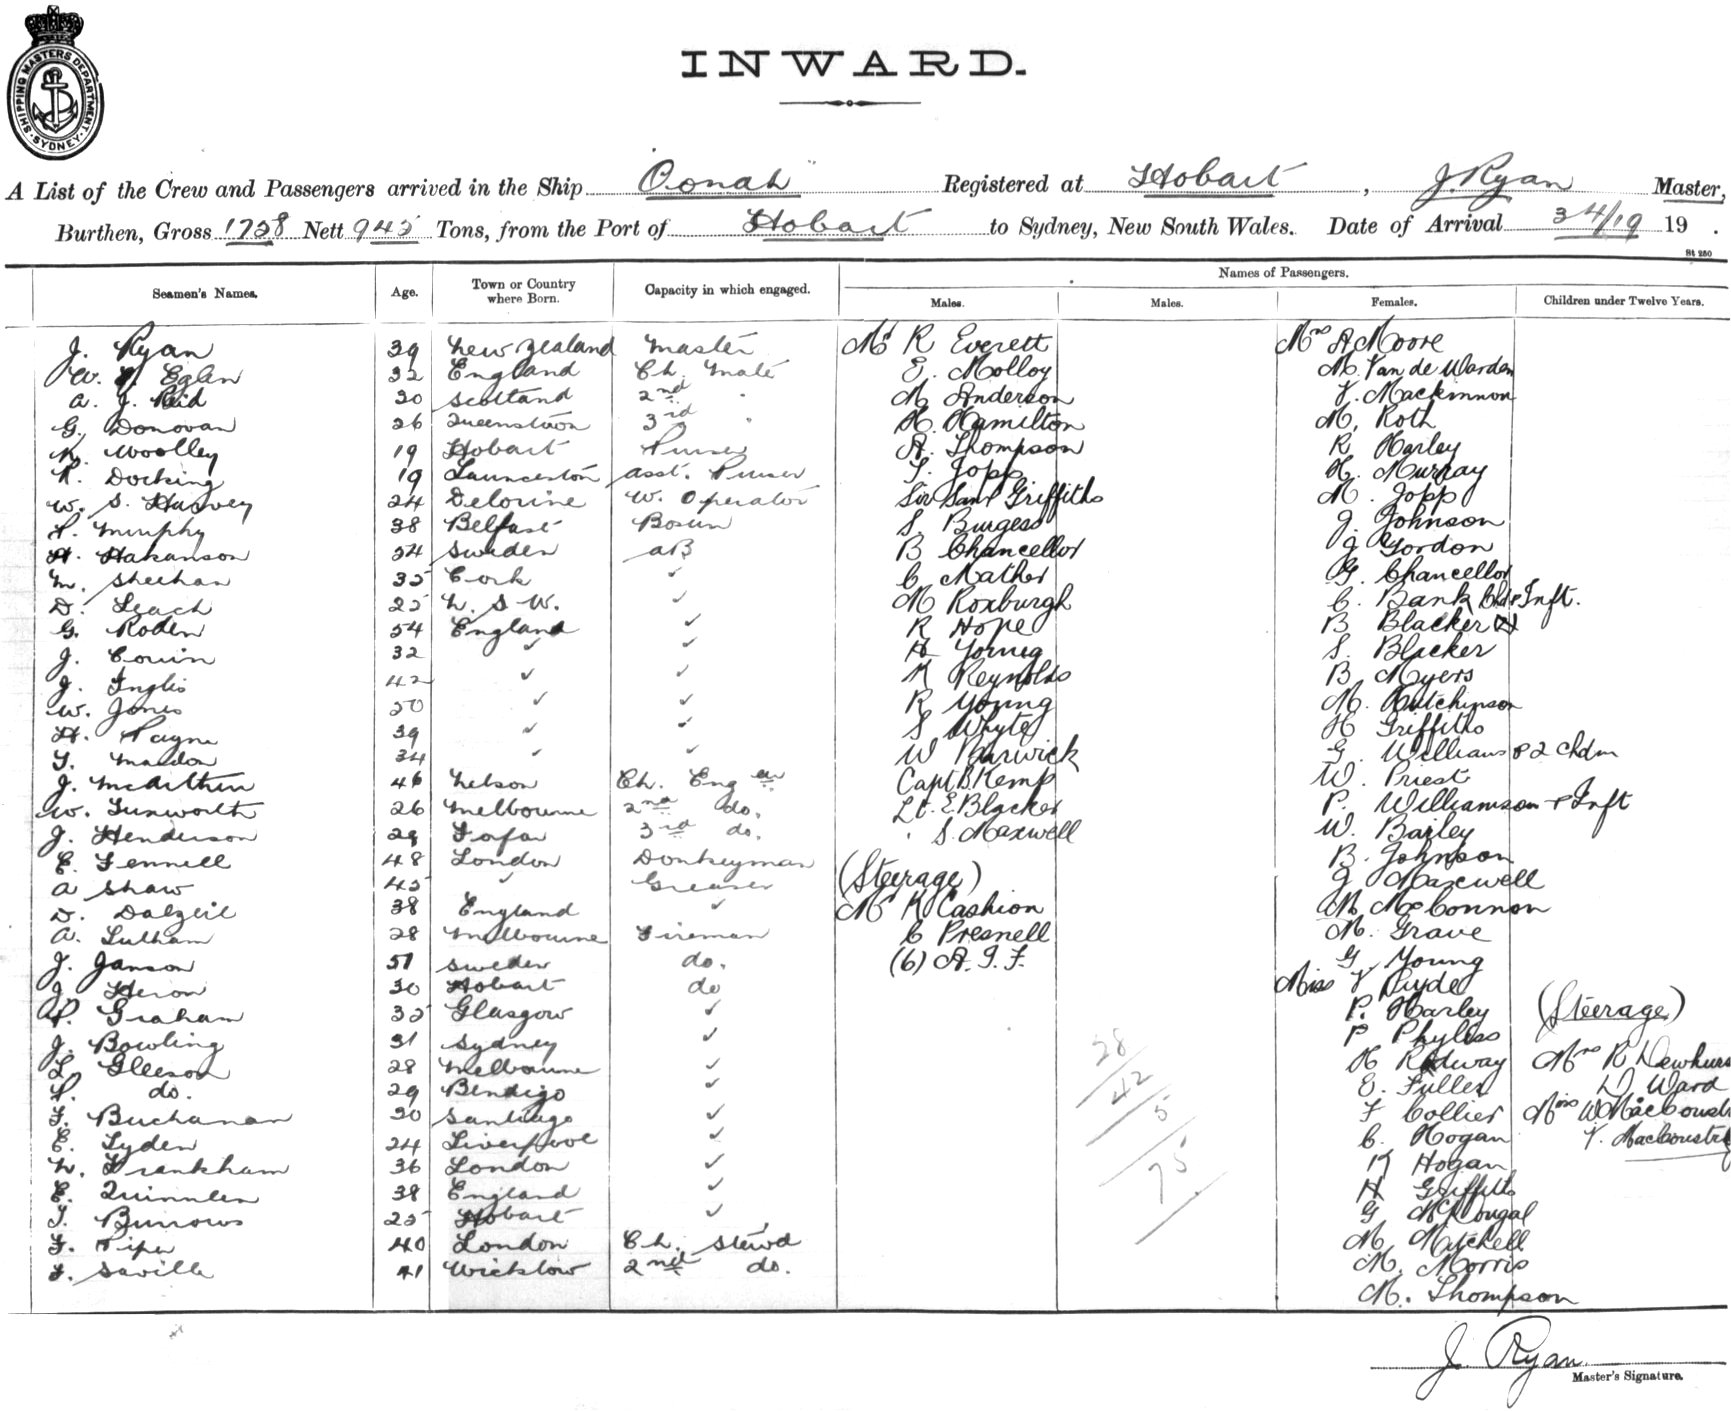 SHIPPING MASTERS DEPARTMENT. SYDNEY.
INWARD.
A List of the Crew and Passengers arrived in the Ship Oonah Registered at Hobart, J. Ryan Master,
Burthen, Gross 1758 Nett 945 Tons, from the Port of Hobart to Sydney, New South Wales. Date of Arrival 3/4/19 19 .
St 280
Seamen's Names. Age. Town or Country where Born. Capacity in which engaged.
J. Ryan 39 New Zealand Master
W. Eglin 32 England Ch. Mate
A. J. Reid 30 Scotland 2nd "
G. Donovan 26 Queenstown 3rd "
K. Woolley 19 Hobart Purser
R. Docking 19 Launceston Asst. Purser
W. S. Harvey 24 Deloraine W. Operator
P. Murphy 38 Belfast Bosun
H. Hakanson 24 Sweden AB
M. Sheehan 35 Cork ✓
D. Leach 25 N. S. W. ✓
G. Roden 54 England ✓
J. Cowin 32 ✓ ✓
J. Inglis 42 ✓ ✓
W. Jones 50 ✓ ✓
H. Payne 39 ✓ ✓
T. Maedon 34 ✓ ✓
J. McArthur 46 Nelson Ch. Enger
W. Tunworth 26 Melbourne 2nd do.
J. Henderson 29 Forfar 3rd do.
E. Fennell 48 London Donkeyman
A Shaw 45 ✓ Greaser
D. Dalzeil 38 England ✓
A. Lulham 28 Melbourne Fireman
J. Janson 51 Sweden do.
J. Heron 30 Hobart do
P. Graham 35 Glasgow ✓
J. Bowling 31 Sydney ✓
L. Gleeson 28 Melbourne ✓
P. do. 29 Bendigo ✓
F. Buchanan 30 Santiago ✓
E. Lyden 24 Liverpool ✓
N. Frankham 36 London ✓
E. Quinnlen 38 England ✓
T. Burrows 25 Hobart ✓
F. Piper 40 London Ch. Stewd
F. Saville 41 Wicklow 2nd do.
Names of Passengers.
Males.
Mr R Everett
E. Molloy
M Anderson
H. Hamilton
A. Thompson
T. Jopp
Sir Saml Griffiths
S. Burgess
B Chancellor
C Mather
M Roxburgh
R Hope
H Young
K Reynolds
R Young
S Whyte
W Barwick
Capt B. Kemp
Lt. E. Blacker
" S. Maxwell
(Steerage)
Mr K Cashion
C Presnell
(6) A. I. F.
Males.
28
42
5
75
Females.
Mrs A Moore
M. Van de Warden
V. Mackinnon
M. Roth
R Harley
H. Murray
M. Jopp
J. Johnson
J Gordon
G. Chancellor
C. Bank Chd & Inft.
B Blacker
S. Blacker
B Myers
M. Hutchinson
H Griffiths
G. Williams & 2 Chdn
W. Priest
P. Williamson & Inft
W. Bailey
B. Johnson
J Maxwell
M McConnon
M. Grave
G Young
Miss V Ryde
P. Harley
P Phyliss
H Rodway
E. Fuller
F Collier
C. Hogan
K Hogan
H Griffiths
G McDougal
M Mitchell
M. Morris
M. Thompson
Children under Twelve Years.
(Steerage)
Mrs R Dewhurs
D. Ward
Miss W MacCoust
V. MacCoustr
J. Ryan
Master's Signature.